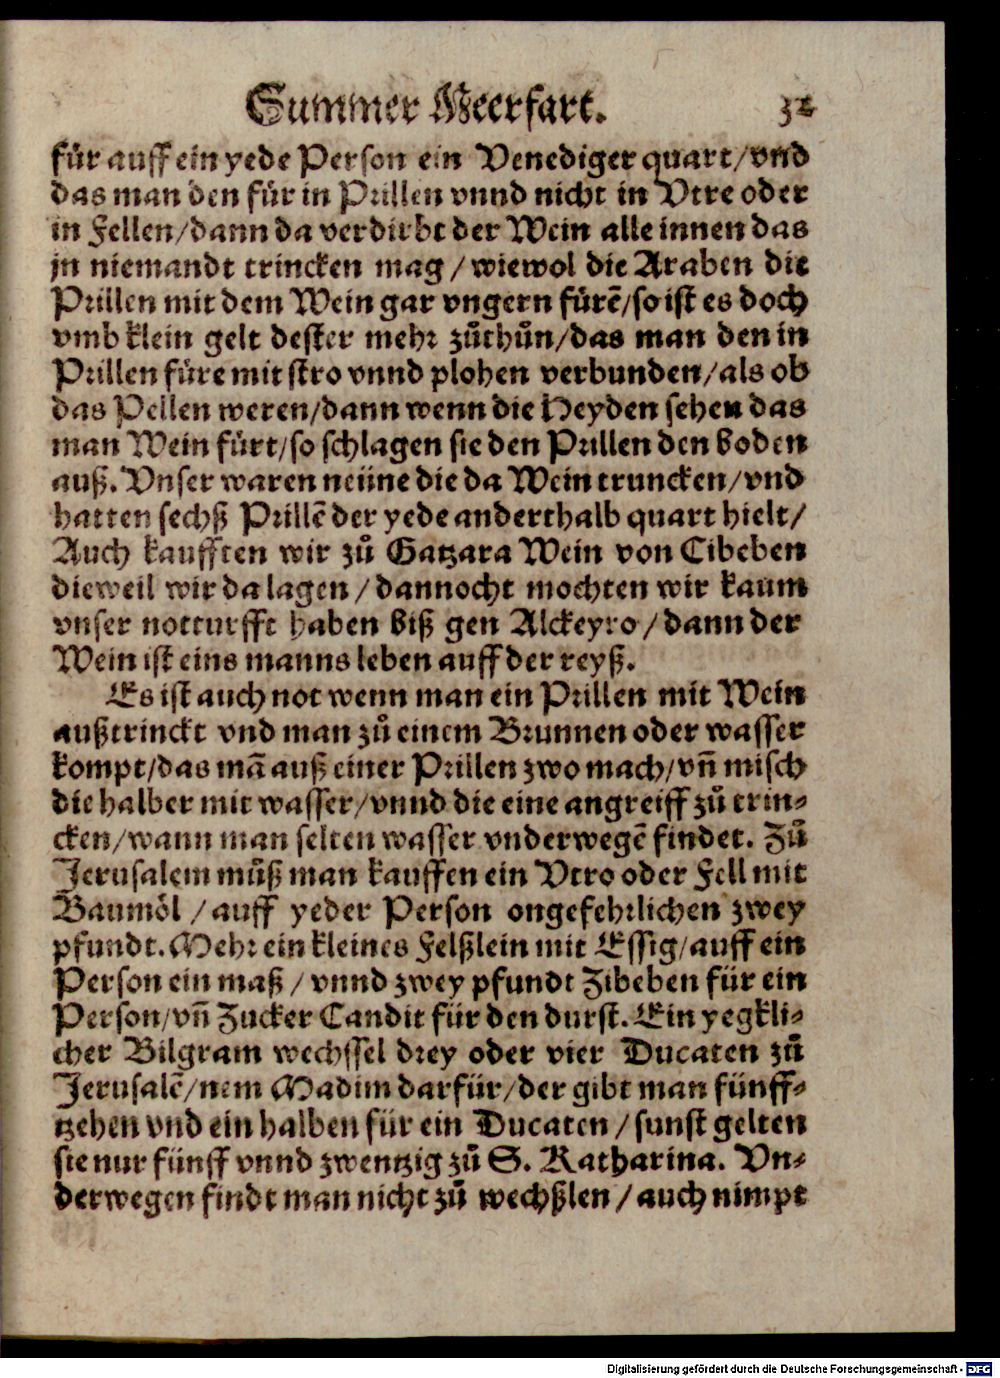 Summer Meerfart. 32
für auff ein yede Person ein Venediger quart/vnd
das man den für in Prillen vnnd nicht in Vtre oder
in Fellen/dann da verdirbt der Wein alle innen das
jn niemandt trincken mag / wiewol die Araben die
Prillen mit dem Wein gar vngern fürē/so ist es doch
vmb klein gelt dester mehr zůthůn/das man den in
Prillen füre mit stro vnnd plohen verbunden/als ob
das Pellen weren/dann wenn die Heyden sehen das
man Wein fürt/so schlagen sie den Prillen den boden
auß. Vnser waren neüne die da Wein truncken/vnd
hatten sechß Prillē der yede anderthalb quart hielt/
Auch kaufften wir zů Gatzara Wein von Cibeben
dieweil wir da lagen / dannocht mochten wir kaum
vnser notturfft haben biß gen Alckeyro / dann der
Wein ist eins manns leben auff der reyß.
Es ist auch not wenn man ein Prillen mit Wein
außtrinckt vnd man zů einem Brunnen oder wasser
kompt/das mā auß einer Prillen zwo mach/vn̄ misch
die halber mit wasser/vnnd die eine angreiff zů trin⸗
cken/wann man selten wasser vnderwegē findet. Zů
Jerusalem můß man kauffen ein Vtro oder Fell mit
Baumöl / auff yeder Person ongefehrlichen zwey
pfundt. Mehr ein kleines Felßlein mit Essig/auff ein
Person ein maß / vnnd zwey pfundt Zibeben für ein
Person/vn̄ Zucker Candit für den durst. Ein yegkli⸗
cher Bilgram wechssel drey oder vier Ducaten zů
Jerusalē/nem Madim darfür/der gibt man fünff⸗
tzehen vnd ein halben für ein Ducaten / sunst gelten
sie nur fünff vnnd zwentzig zů S. Katharina. Vn⸗
derwegen findt man nicht zů wechßlen / auch nimpt
Digitalisierung gefördert durch die Deutsche Forschungsgemeinschaft - DFG